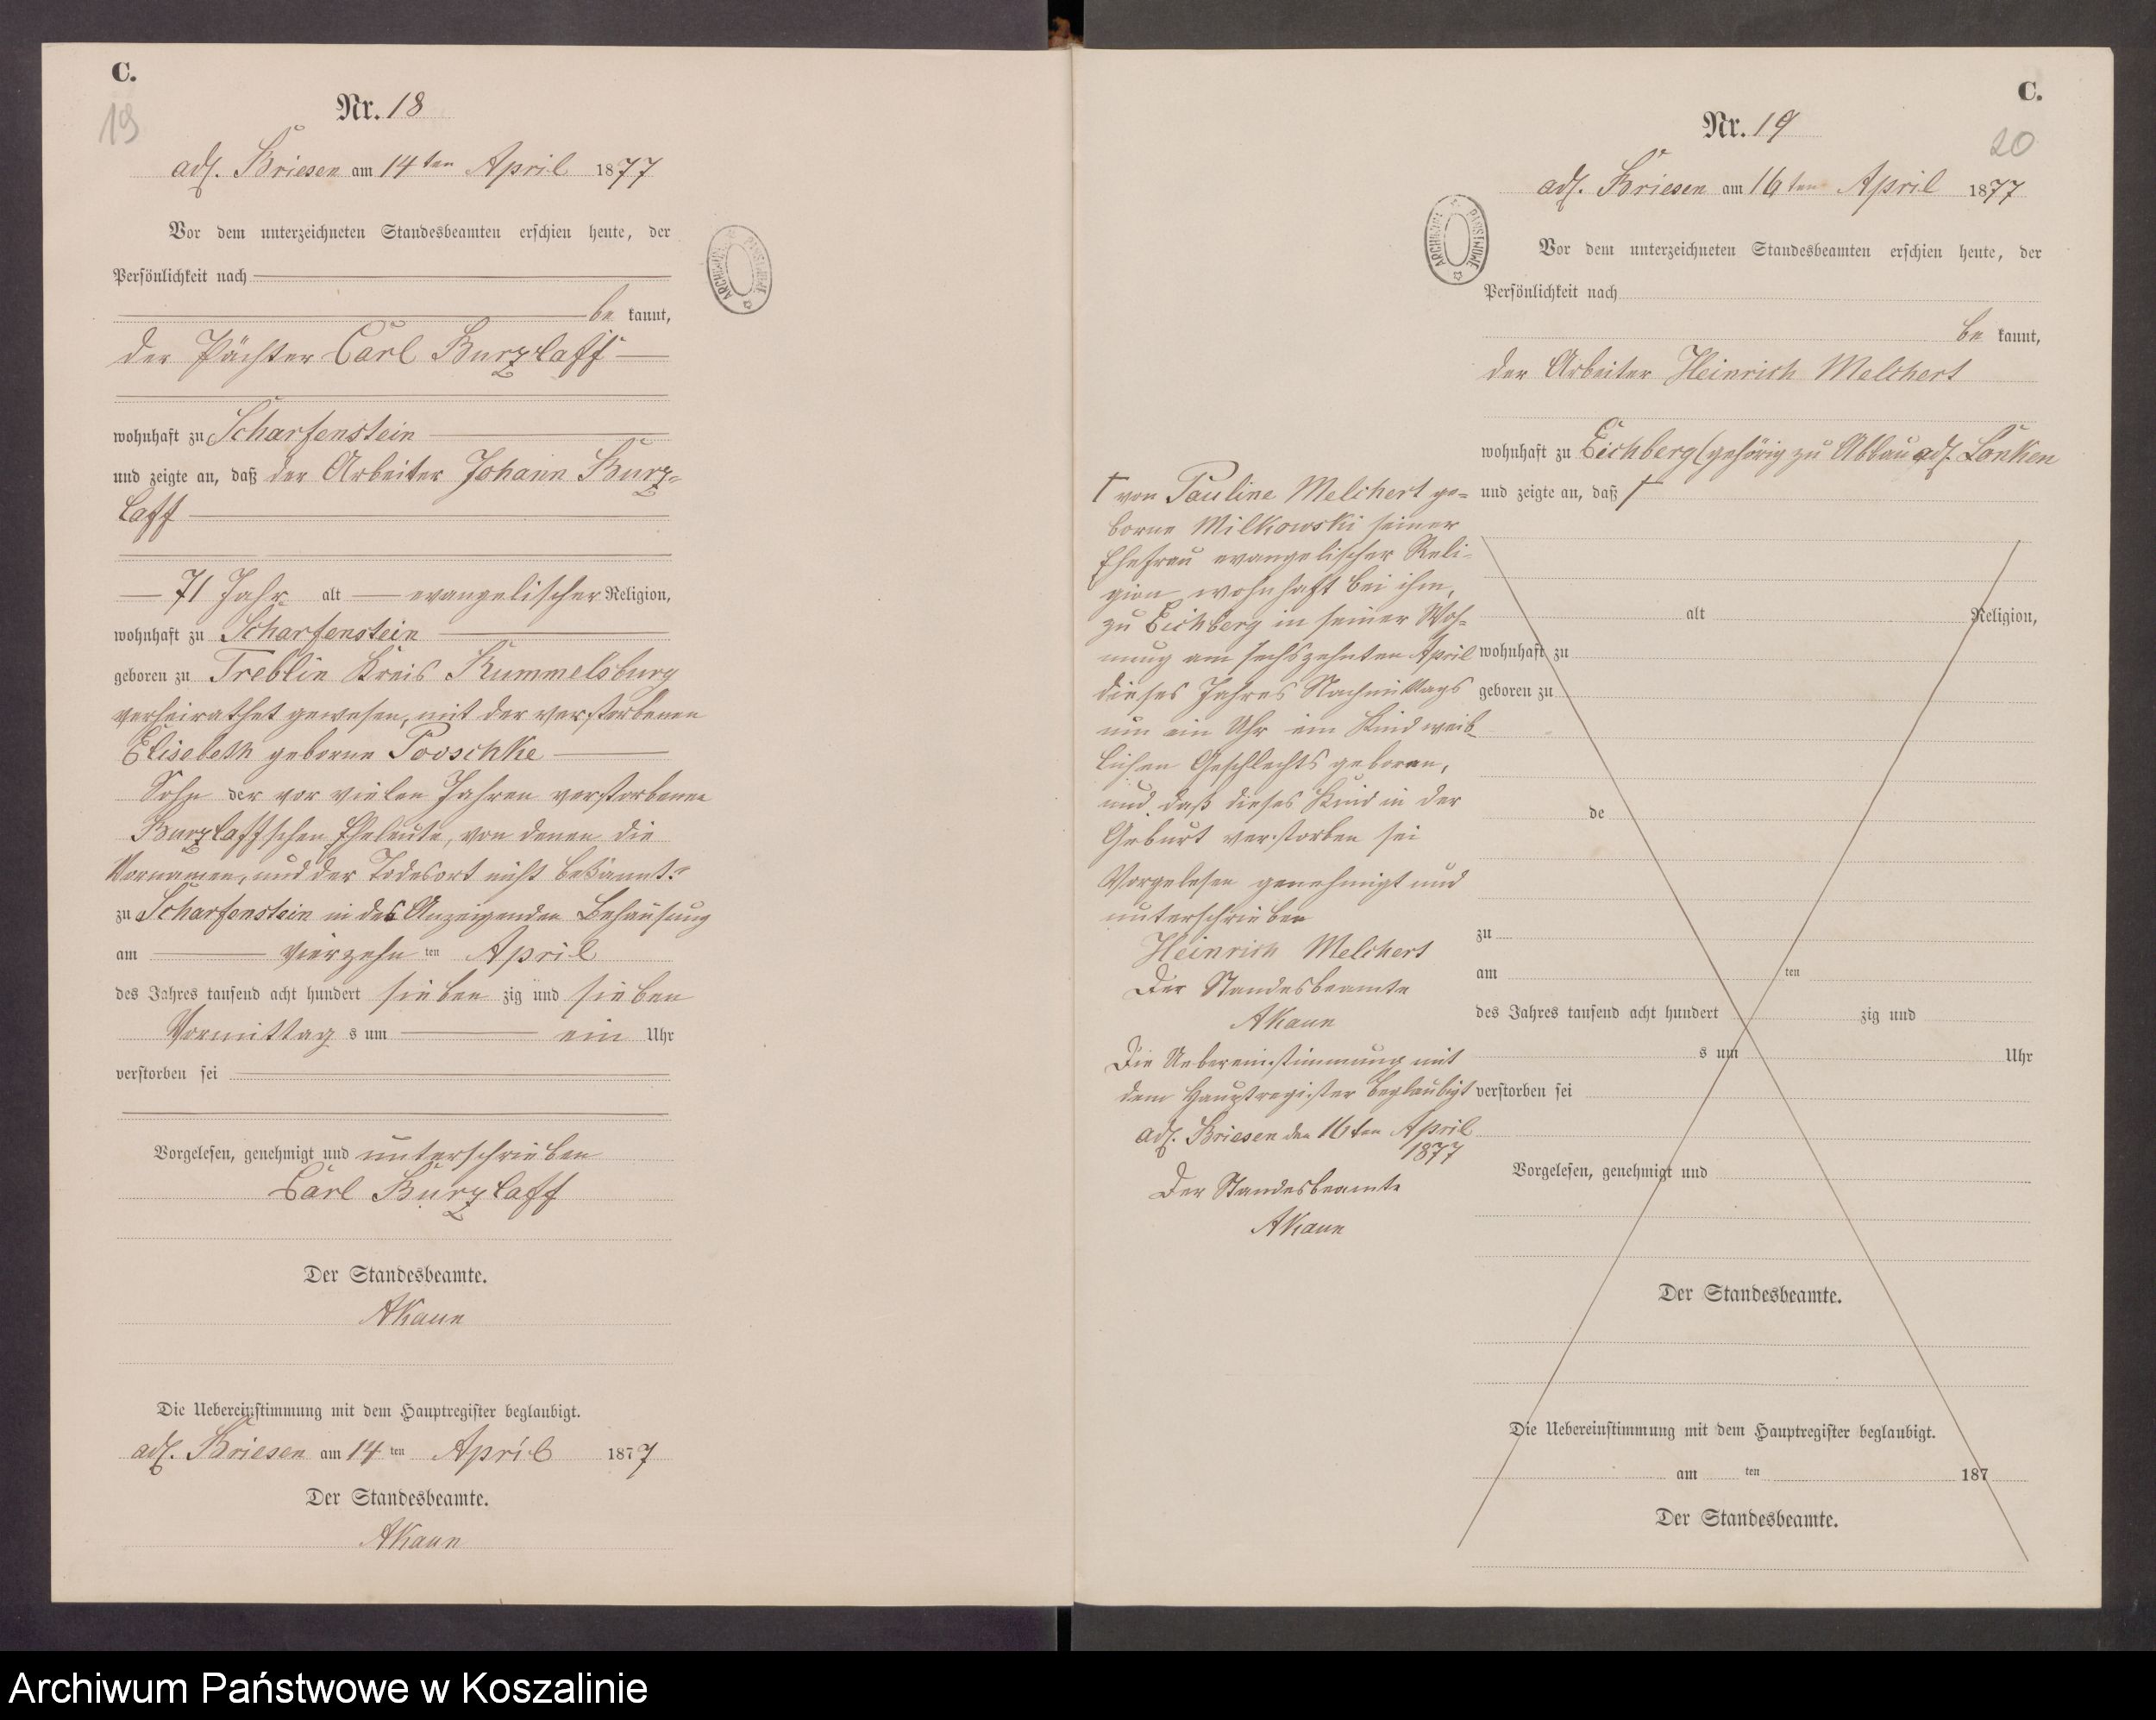 C.
19
Nr. 18
adl. Briesen am 14ten April 1877
Vor dem unterzeichneten Standesbeamten erschien heute, der
Persönlichkeit nach
be kannt,
der Pächter Carl Burzlaff
wohnhaft zu Scharfenstein
und zeigte an, daß der Arbeiter Johann Burz-
laff
71 Jahr alt evangelischer Religion,
wohnhaft zu Scharfenstein
geboren zu Treblin Kreis Rummelsburg
verheirathet gewesen, mit der verstorbenen
Elisabeth geborne Pooschke
Sohn der vor vielen Jahren verstorbenen
Burzlaffschen Eheleute, von denen die
Vornamen, und der Todesort nicht bekannt.
zu Scharfenstein in des Anzeigenden Behausung
am vierzehn ten April
des Jahres tausend acht hundert sieben zig und sieben
Vormittag s um ein Uhr
verstorben sei
Vorgelesen, genehmigt und unterschrieben
Carl Burzlaff
Der Standesbeamte.
AKaun
Die Uebereinstimmung mit dem Hauptregister beglaubigt.
adl. Briesen am 14 ten April 1877
Der Standesbeamte.
AKaun
ARCHIWUM PAŃSTWOWE
C.
20
Nr. 19
adl. Briesen am 16ten April 1877
ARCHIWUM PAŃSTWOWE
Vor dem unterzeichneten Standesbeamten erschien heute, der
Persönlichkeit nach
be kannt,
der Arbeiter Heinrich Melchert
wohnhaft zu Eichberg (gehörig zu Abbau adl. Lanken
und zeigte an, daß †
† von Pauline Melchert ge-
borne Milkowski seiner
Ehefrau evangelischer Reli-
gion wohnhaft bei ihm,
zu Eichberg in seiner Woh-
nung am sechszehnten April
dieses Jahres Nachmittags
um ein Uhr ein Kind weib-
lichen Geschlechts geboren,
und daß dieses Kind in der
Geburt verstorben sei
Vorgelesen genehmigt und
unterschrieben
Heinrich Melchert
Der Standesbeamte
AKaun
Die Uebereinstimmung mit
dem Hauptregister beglaubigt
adl. Briesen den 16ten April
1877
Der Standesbeamte
AKaun
alt Religion,
wohnhaft zu
geboren zu
de
zu
am ten
des Jahres tausend acht hundert zig und
s um Uhr
verstorben sei
Vorgelesen, genehmigt und
Der Standesbeamte.
Die Uebereinstimmung mit dem Hauptregister beglaubigt.
am ten 187
Der Standesbeamte.
Archiwum Państwowe w Koszalinie